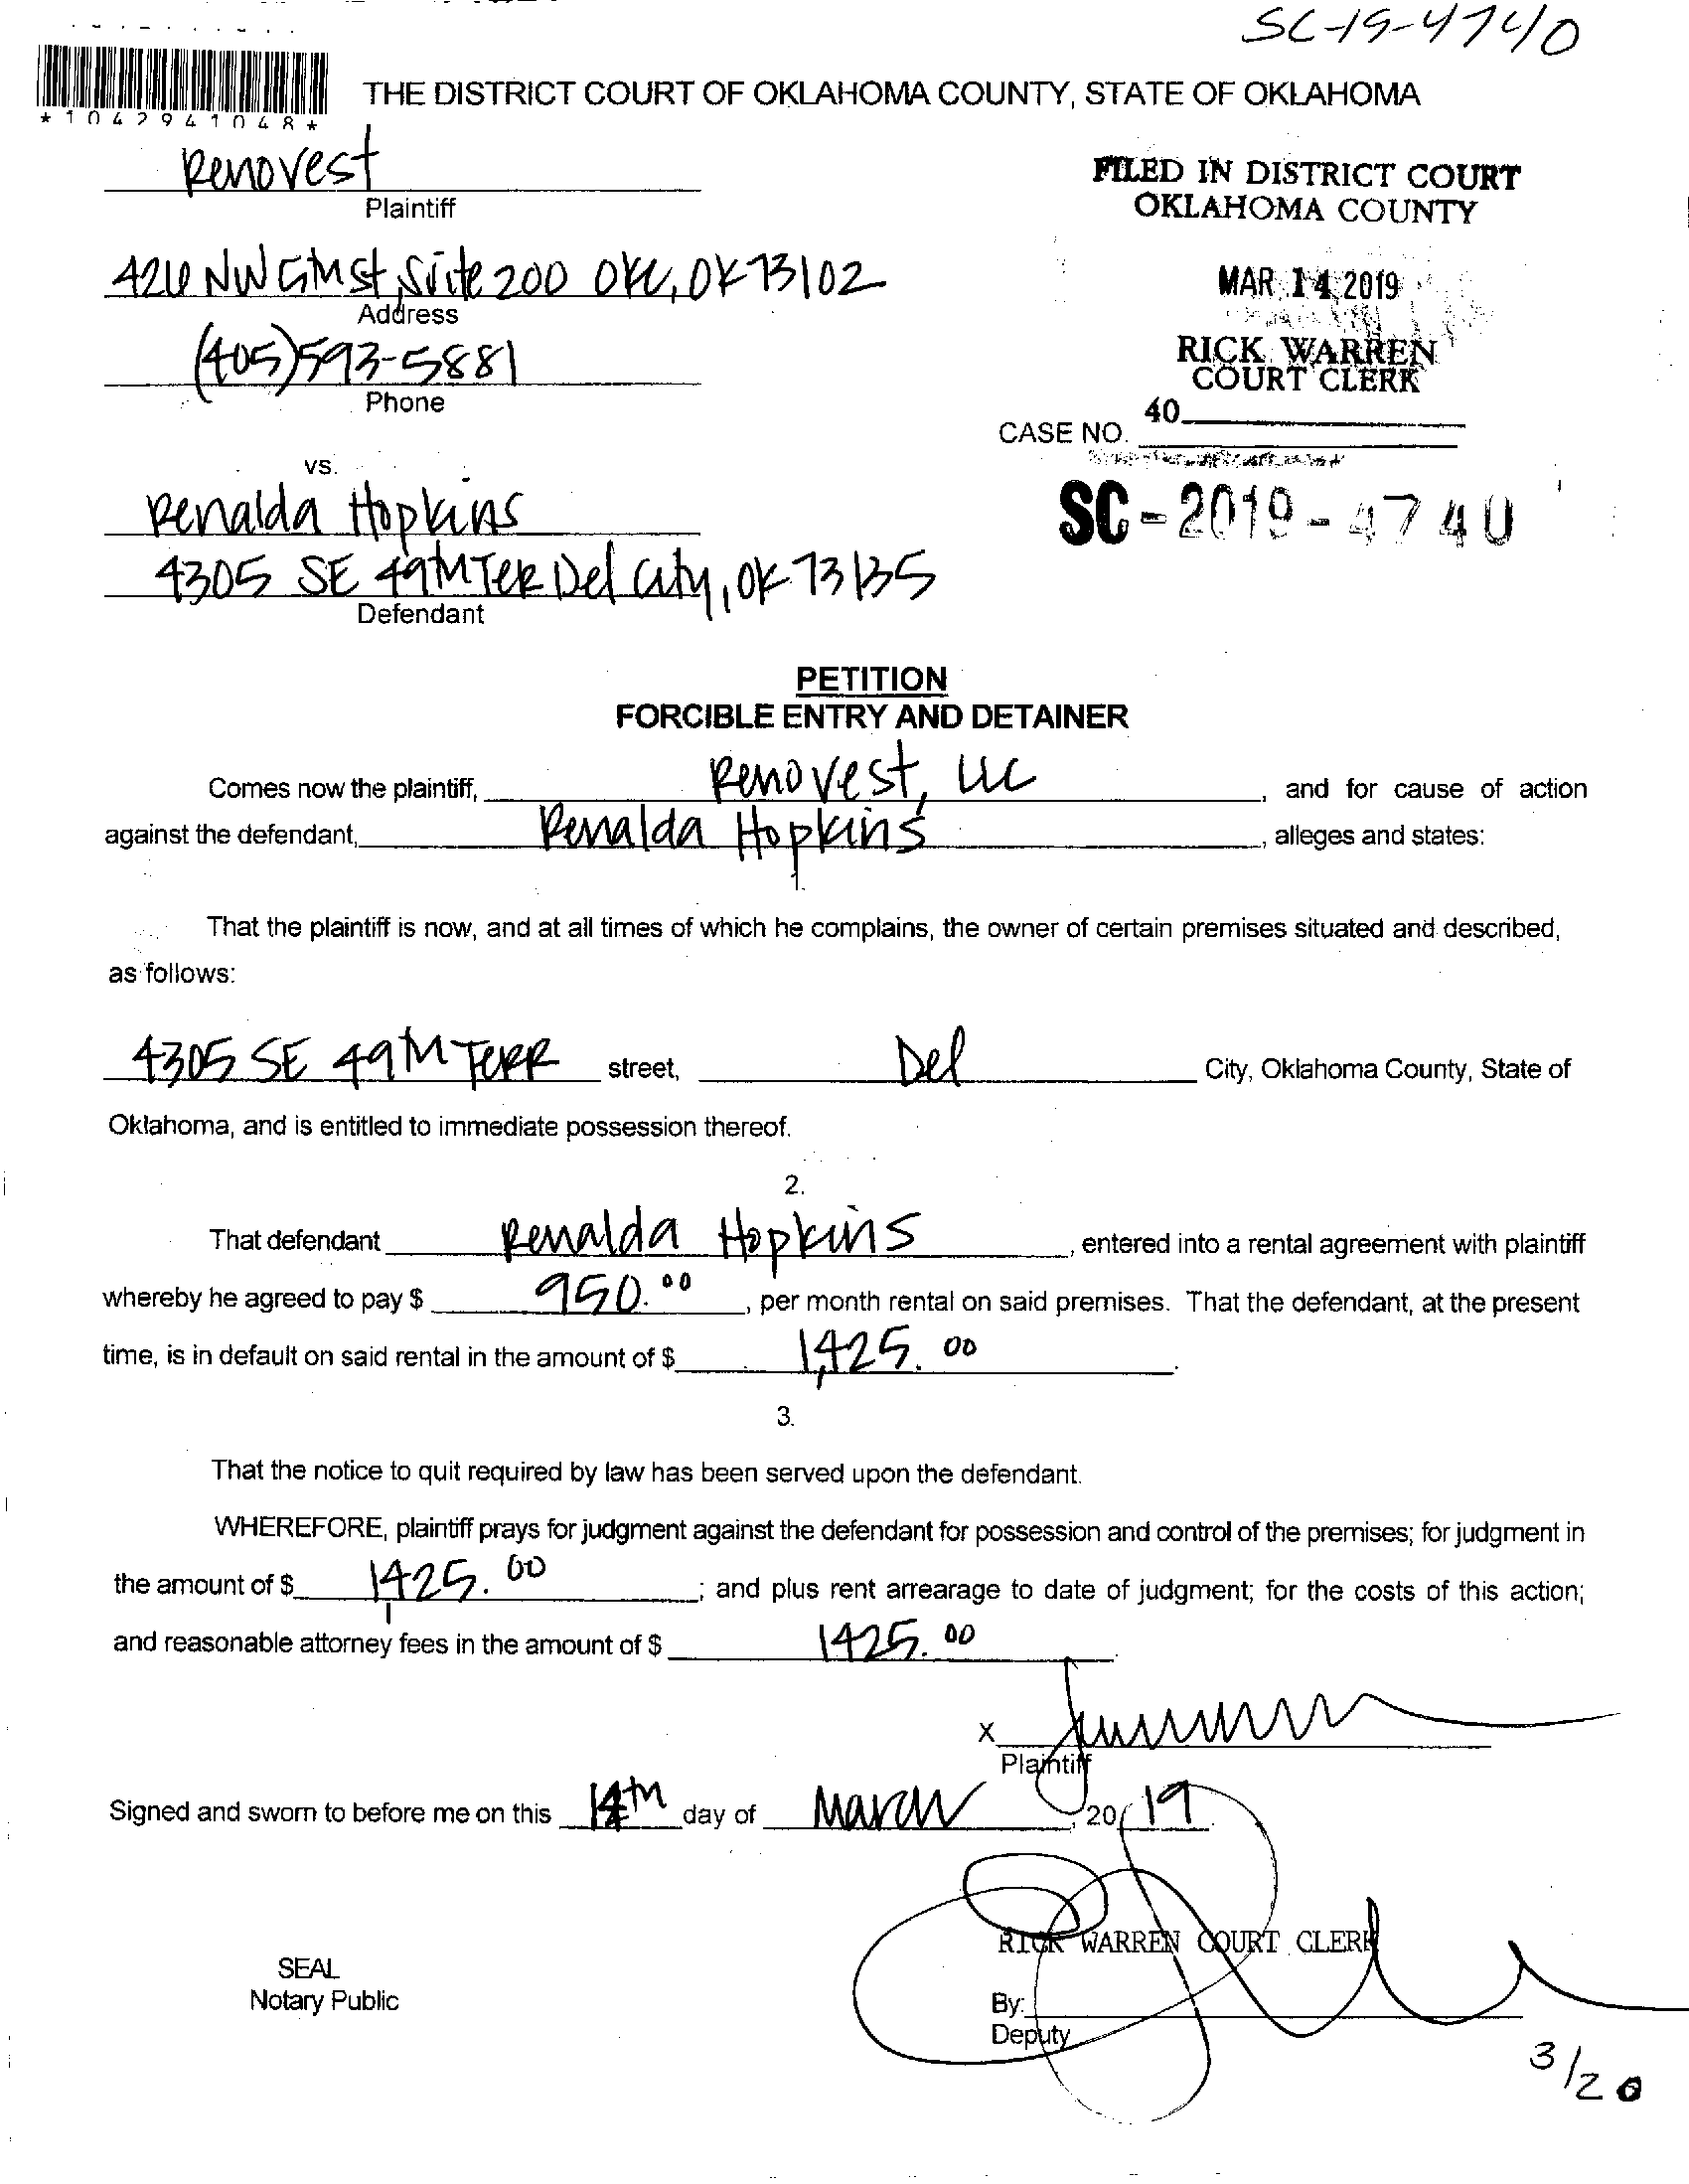 SC-19-4740
*1042941048*
THE DISTRICT COURT OF OKLAHOMA COUNTY, STATE OF OKLAHOMA
Renovest
Plaintiff
FILED IN DISTRICT COURT
OKLAHOMA COUNTY
426 NW 5th st Suite 200 OKC, OK 73102
Address
MAR 14 2019
(405)593-5881
Phone
RICK WARREN
COURT CLERK
40
CASE NO.
vs.
SC-2019-4740
Renalda Hopkins
4305 SE 49th TER Del City, OK 73135
Defendant
PETITION
FORCIBLE ENTRY AND DETAINER
Comes now the plaintiff, Renovest, LLC, and for cause of action
against the defendant, Renalda Hopkins, alleges and states:
1.
That the plaintiff is now, and at all times of which he complains, the owner of certain premises situated and described,
as follows:
4305 SE 49th TERR street, Del City, Oklahoma County, State of
Oklahoma, and is entitled to immediate possession thereof.
2.
That defendant Renalda Hopkins, entered into a rental agreement with plaintiff
whereby he agreed to pay $ 950.00, per month rental on said premises. That the defendant, at the present
time, is in default on said rental in the amount of $ 1,425.00.
3.
That the notice to quit required by law has been served upon the defendant.
WHEREFORE, plaintiff prays for judgment against the defendant for possession and control of the premises; for judgment in
the amount of $ 1,425.00; and plus rent arrearage to date of judgment; for the costs of this action;
and reasonable attorney fees in the amount of $ 1425.00.
X
Plaintiff
Signed and sworn to before me on this 14th day of March, 2019.
RICK WARREN COURT CLERK
SEAL
Notary Public
By:
Deputy
3/20